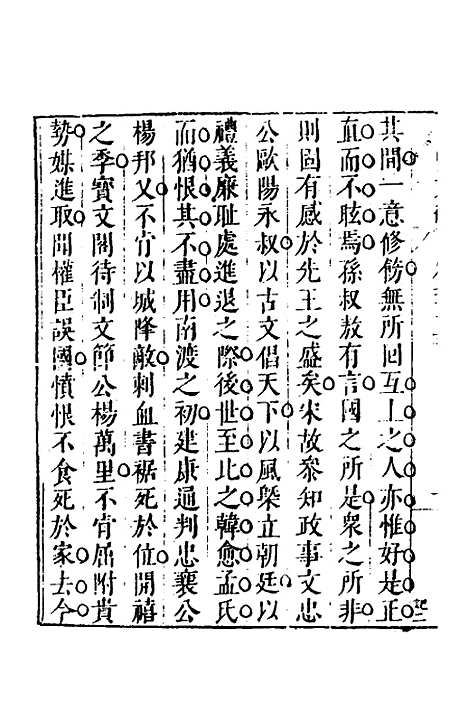 其間一意修飭無所回互上之人亦惟好是正
直而不眩焉孫叔敖有言國之所是衆之所非
則固有感於先王之盛矣宋故叅知政事文忠
公歐陽永叔以古文倡天下以風槩立朝廷以
禮義廉耻處進退之際後世至比之韓愈孟氏
而猶恨其不盡用南渡之初建康通判忠襄公
楊邦乂不肯以城降敵刺血書裾死於位開禧
之季寶文閣待制文節公楊萬里不肯屈附貴
勢媒進取聞權臣誤國憤恨不食死於家去今
記二